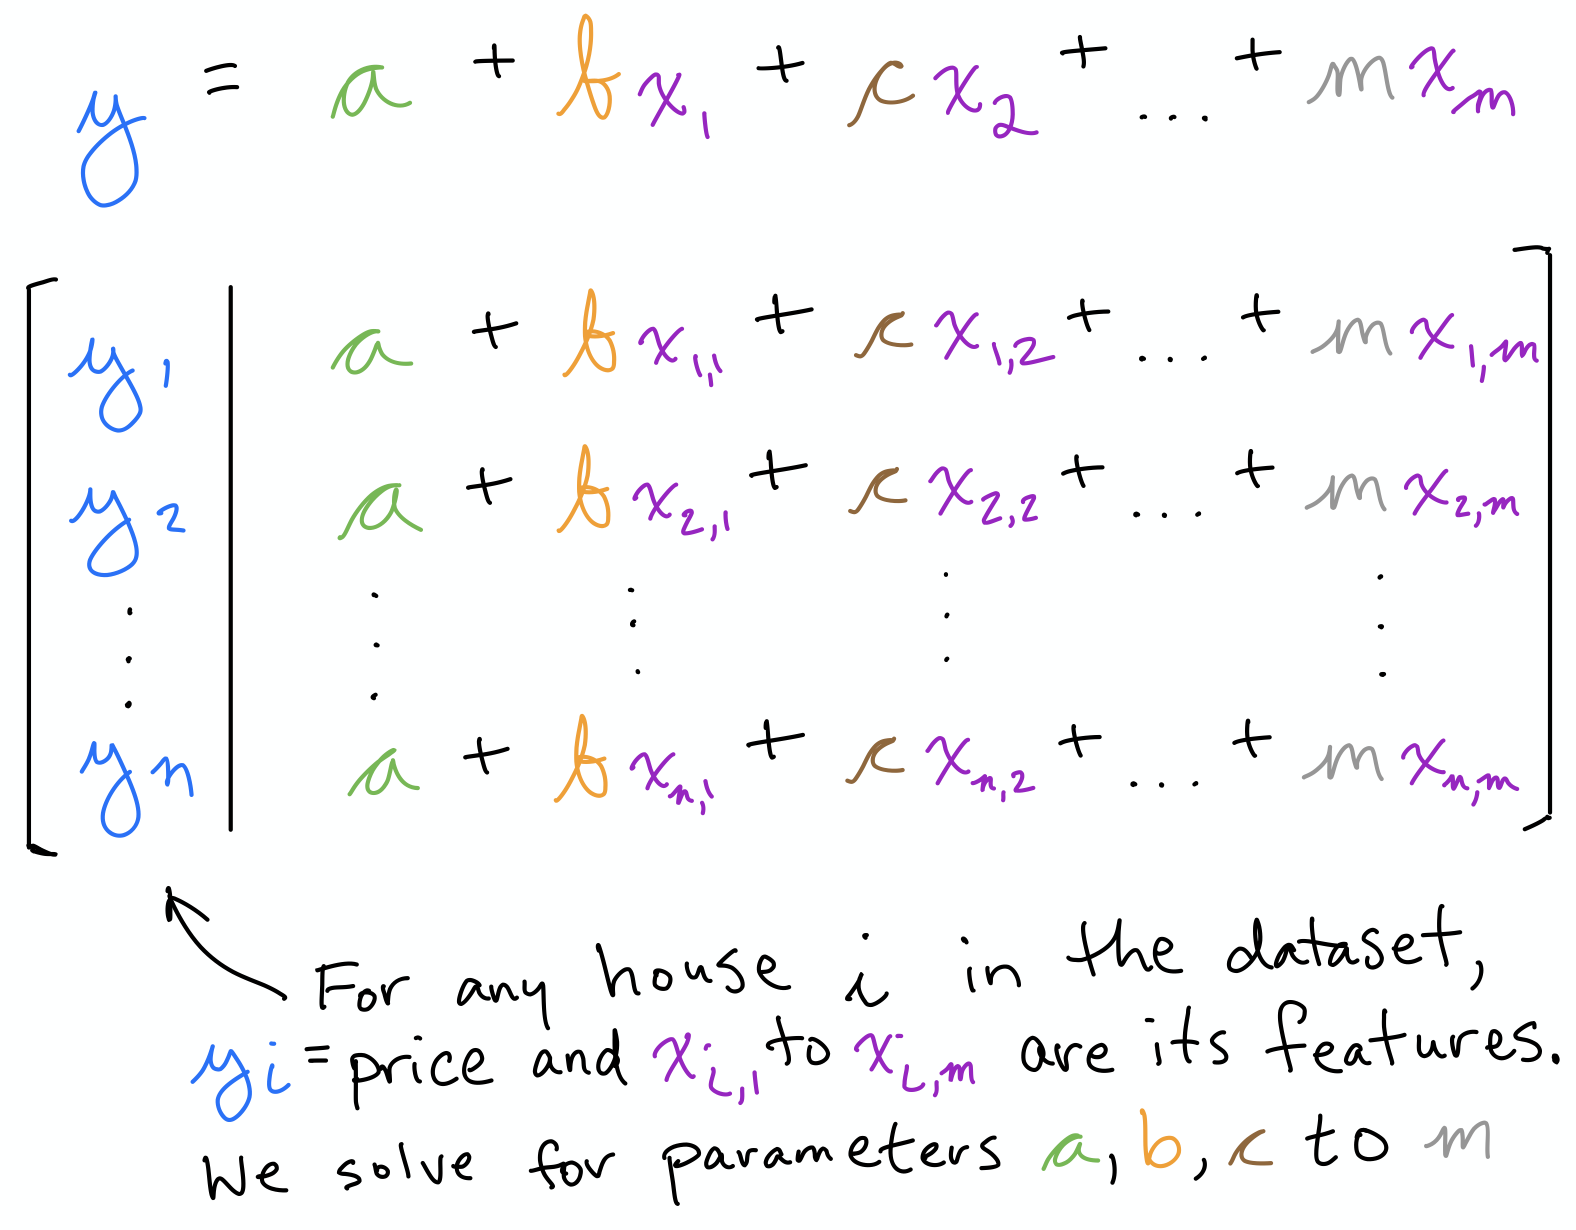 y = a + bx₁ + cx₂ + ... + mxₘ
y₁ | a + bx₁,₁ + cx₁,₂ + ... + mx₁,ₘ
y₂ | a + bx₂,₁ + cx₂,₂ + ... + mx₂,ₘ
⋮ ⋮ ⋮ ⋮ ⋮
yₙ | a + bxₙ,₁ + cxₙ,₂ + ... + mxₙ,ₘ
For any house i in the dataset,
yᵢ = price and xᵢ,₁ to xᵢ,ₘ are its features.
We solve for parameters a, b, c to m